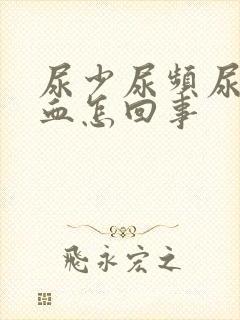 尿少尿頻尿
血怎回事
飛永宏之